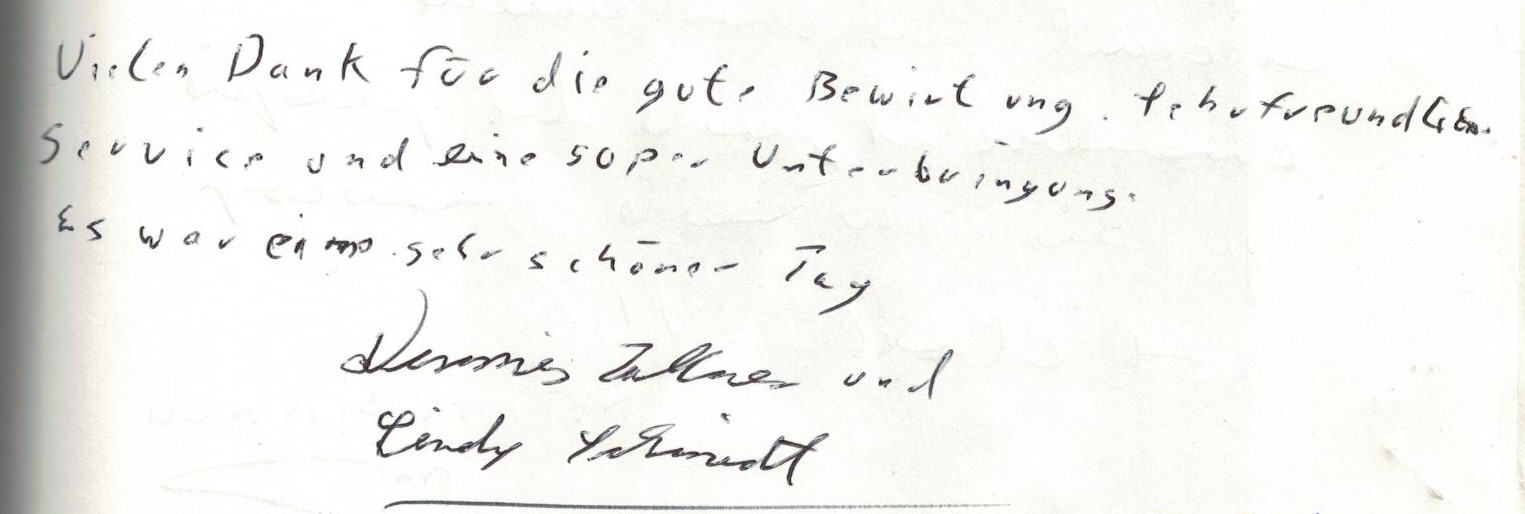 Vielen Dank für die gute Bewirtung. Sehr freundlichen
Service und eine super Unterbringung.
Es war ein sehr schöner Tag
Dennis und
Cindy Schmidt